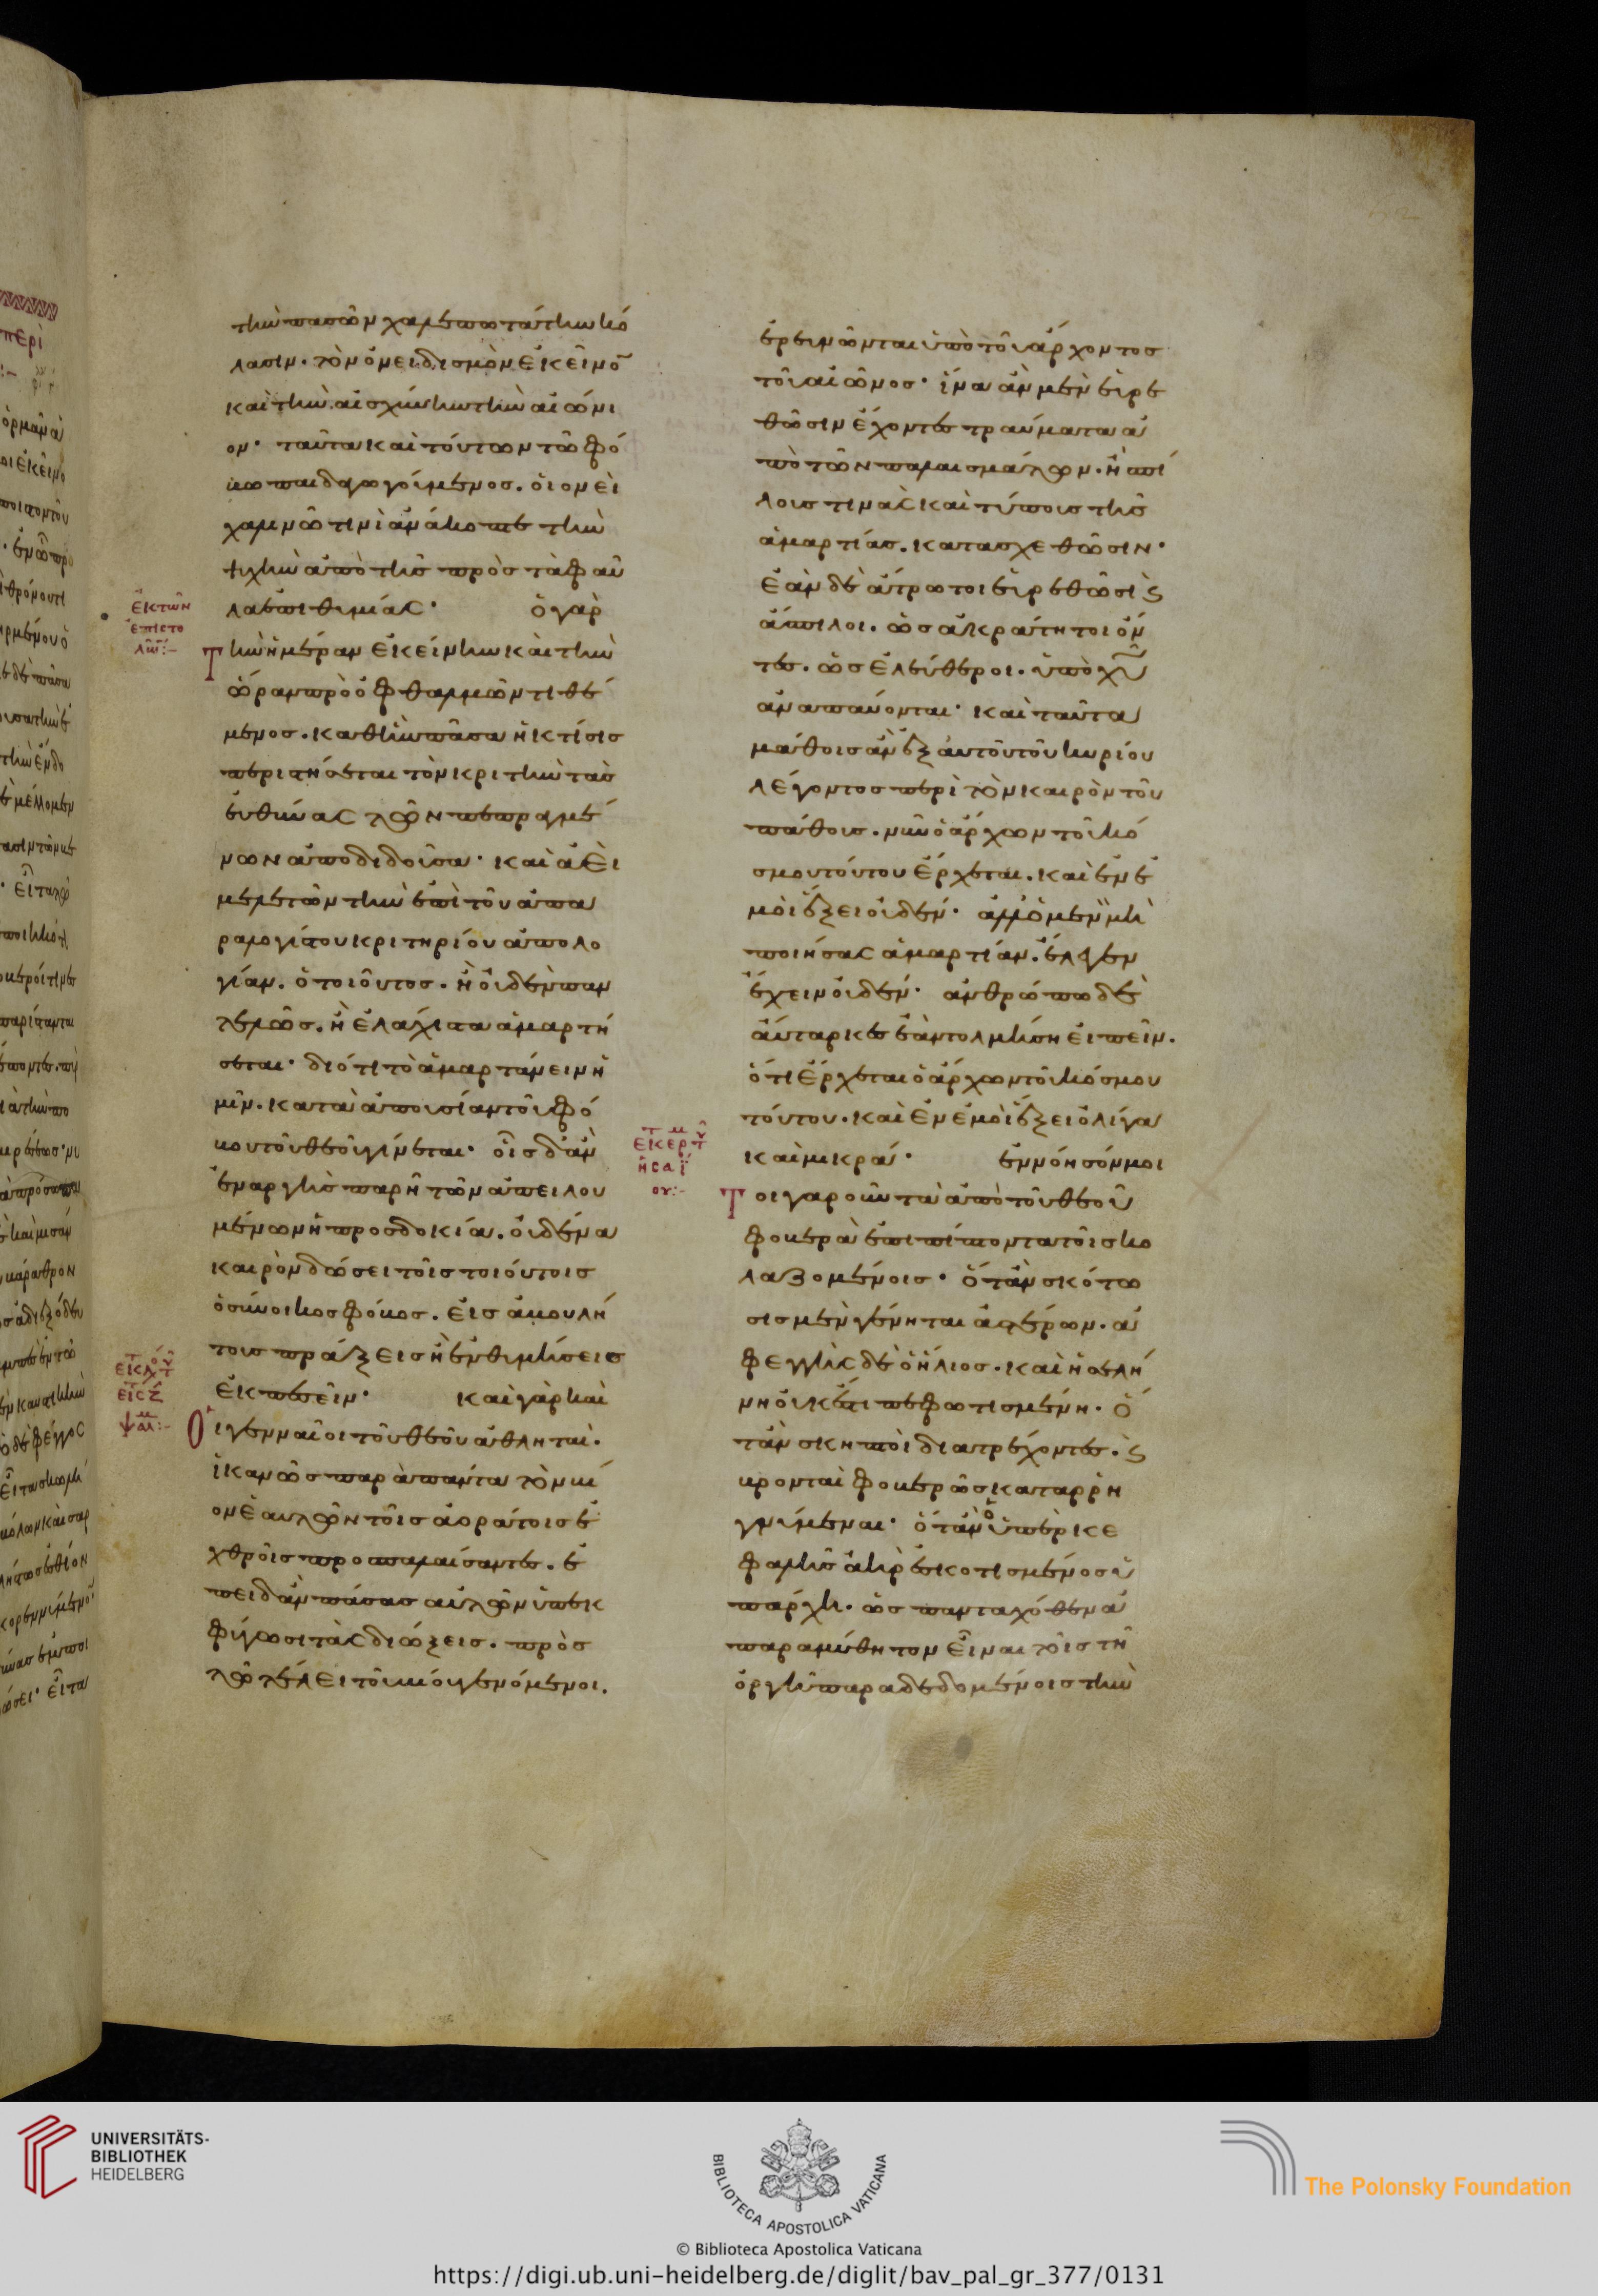 τὴν πασῶν χαλεπωτάτην κό
λασιν. τὸν ὀνειδισμὸν ἐκεῖνο
καὶ τὴν αἰσχύνην τὴν αἰώνι
ον· ταῦτα καὶ τούτων τῶ φό
βω παιδαγωγούμενος. οἱονεὶ
χαλινῶ τινὶ ἀνάκοπτε τὴν
ψυχὴν ἀπὸ τῆς πρὸς τὰ φαῦ
λα ἐπιθυμίας· ὁ γὰρ
ἐκ τῶν
ἐπιστο
λῶν:-
Τὴν ἡμέραν ἐκείνην καὶ τὴν
ὥραν πρὸ ὀφθαλμῶν τιθέ
μενος. καθ' ἣν πᾶσα ἡ κτίσις
περιστήσεται τὸν κριτὴν τὰς
εὐθύνας τῶν πεπραγμέ
νων ἀποδιδοῦσα· καὶ ἀεὶ
μελετῶν τὴν ἐπὶ τοῦ ἀπα
ραλογίστου κριτηρίου ἀπολο
γίαν. ὁ τοιοῦτος. ἢ οὐδὲν παν
τελῶς. ἢ ἐλάχιστα ἁμαρτή
σεται· διότι τὸ ἁμαρτάνειν ἡ
μῖν. κατὰ ἀπουσίαν τοῦ φό
βου τοῦ θεοῦ γίνεται· οἷς δ' ἂν
ἐναργὴς παρῆ τῶν ἀπειλου
μένων ἡ προσδοκία. οὐδένα
καιρὸν δώσει τοῖς τοιούτοις
ὁ σύνοικος φόβος. εἰς ἀβουλή
τους πράξεις ἢ ἐνθυμήσεις
ἐκπεσεῖν· καὶ γὰρ καὶ
ἐκ τοῦ
εἰς ζ
ψαλμ:-
Οἱ γενναῖοι τοῦ θεοῦ ἀθληταί.
ἱκανῶς παρὰ πάντα τὸν βί
ον ἑαυτῶν τοῖς ἀοράτοις ἐ
χθροῖς προσπαλαίσαντες. ἐ
πειδὰν πάσας αὐτῶν ὑπεκ
φύγωσι τὰς διώξεις. πρὸς
τῶ τέλει τοῦ βίου γενόμενοι.
ἐρευνῶνται ὑπὸ τοῦ ἄρχοντος
τοῦ αἰῶνος· ἵνα ἂν μὲν εὑρε
θῶσιν ἔχοντες τραύματα ἀ
πὸ τῶν παλαισμάτων. ἢ σπί
λους τινὰς καὶ τύπους τῆς
ἁμαρτίας. κατασχεθῶσιν·
ἐὰν δὲ ἄτρωτοι εὑρεθῶσι καὶ
ἄσπιλοι. ὡς ἀκράτητοι ὄν
τες. ὡς ἐλεύθεροι. ὑπὸ χυ
ἀναπαύονται· καὶ ταῦτα
μάθοις ἂν ἐξ αὐτοῦ τοῦ κυρίου
λέγοντος περὶ τὸν καιρὸν τοῦ
πάθους. νῦν ὁ ἄρχων τοῦ κό
σμου τούτου ἔρχεται. καὶ ἐν ἐ
μοὶ ἕξει οὐδέν· ἀλλ' ὁ μὲν μὴ
ποιήσας ἁμαρτίαν. ἔλεγεν
ἔχειν οὐδέν· ἀνθρώπω δὲ
αὔταρκες ἐὰν τολμήση εἰπεῖν.
ὅτι ἔρχεται ὁ ἄρχων τοῦ κόσμου
τούτου. καὶ ἐν ἐμοὶ ἕξει ὀλίγα
καὶ μικρά· ἐννόησόν μοι
ἐκ ερμ τ
ησαΐ
ου:-
Τοιγαροῦν τὰ ἀπὸ τοῦ θεοῦ
φοβερὰ ἐπιπίπτοντα τοῖς κο
λαζομένοις· ὅταν σκότω
σις μὲν γένηται ἀστέρων. ἀ
φεγγὴς δὲ ὁ ἥλιος. καὶ ἡ σελή
νη οὐκέτι πεφωτισμένη· ὅ
ταν σκηπτοὶ διατρέχοντες. καὶ
βρονταὶ φοβερῶς καταρρη
γνύμεναι· ὅταν ὁ ὑπὲρ κε
φαλῆς ἀὴρ ἐσκοτισμένος ὑ
πάρχη. ὡς πανταχόθεν ἀ
παραμύθητον εἶναι τοῖς τῆ
ὀργῆ παραδεδομένοις τὴν
UNIVERSITÄTS-
BIBLIOTHEK
HEIDELBERG
BIBLIOTECA APOSTOLICA VATICANA
The Polonsky Foundation
© Biblioteca Apostolica Vaticana
https://digi.ub.uni-heidelberg.de/diglit/bav_pal_gr_377/0131